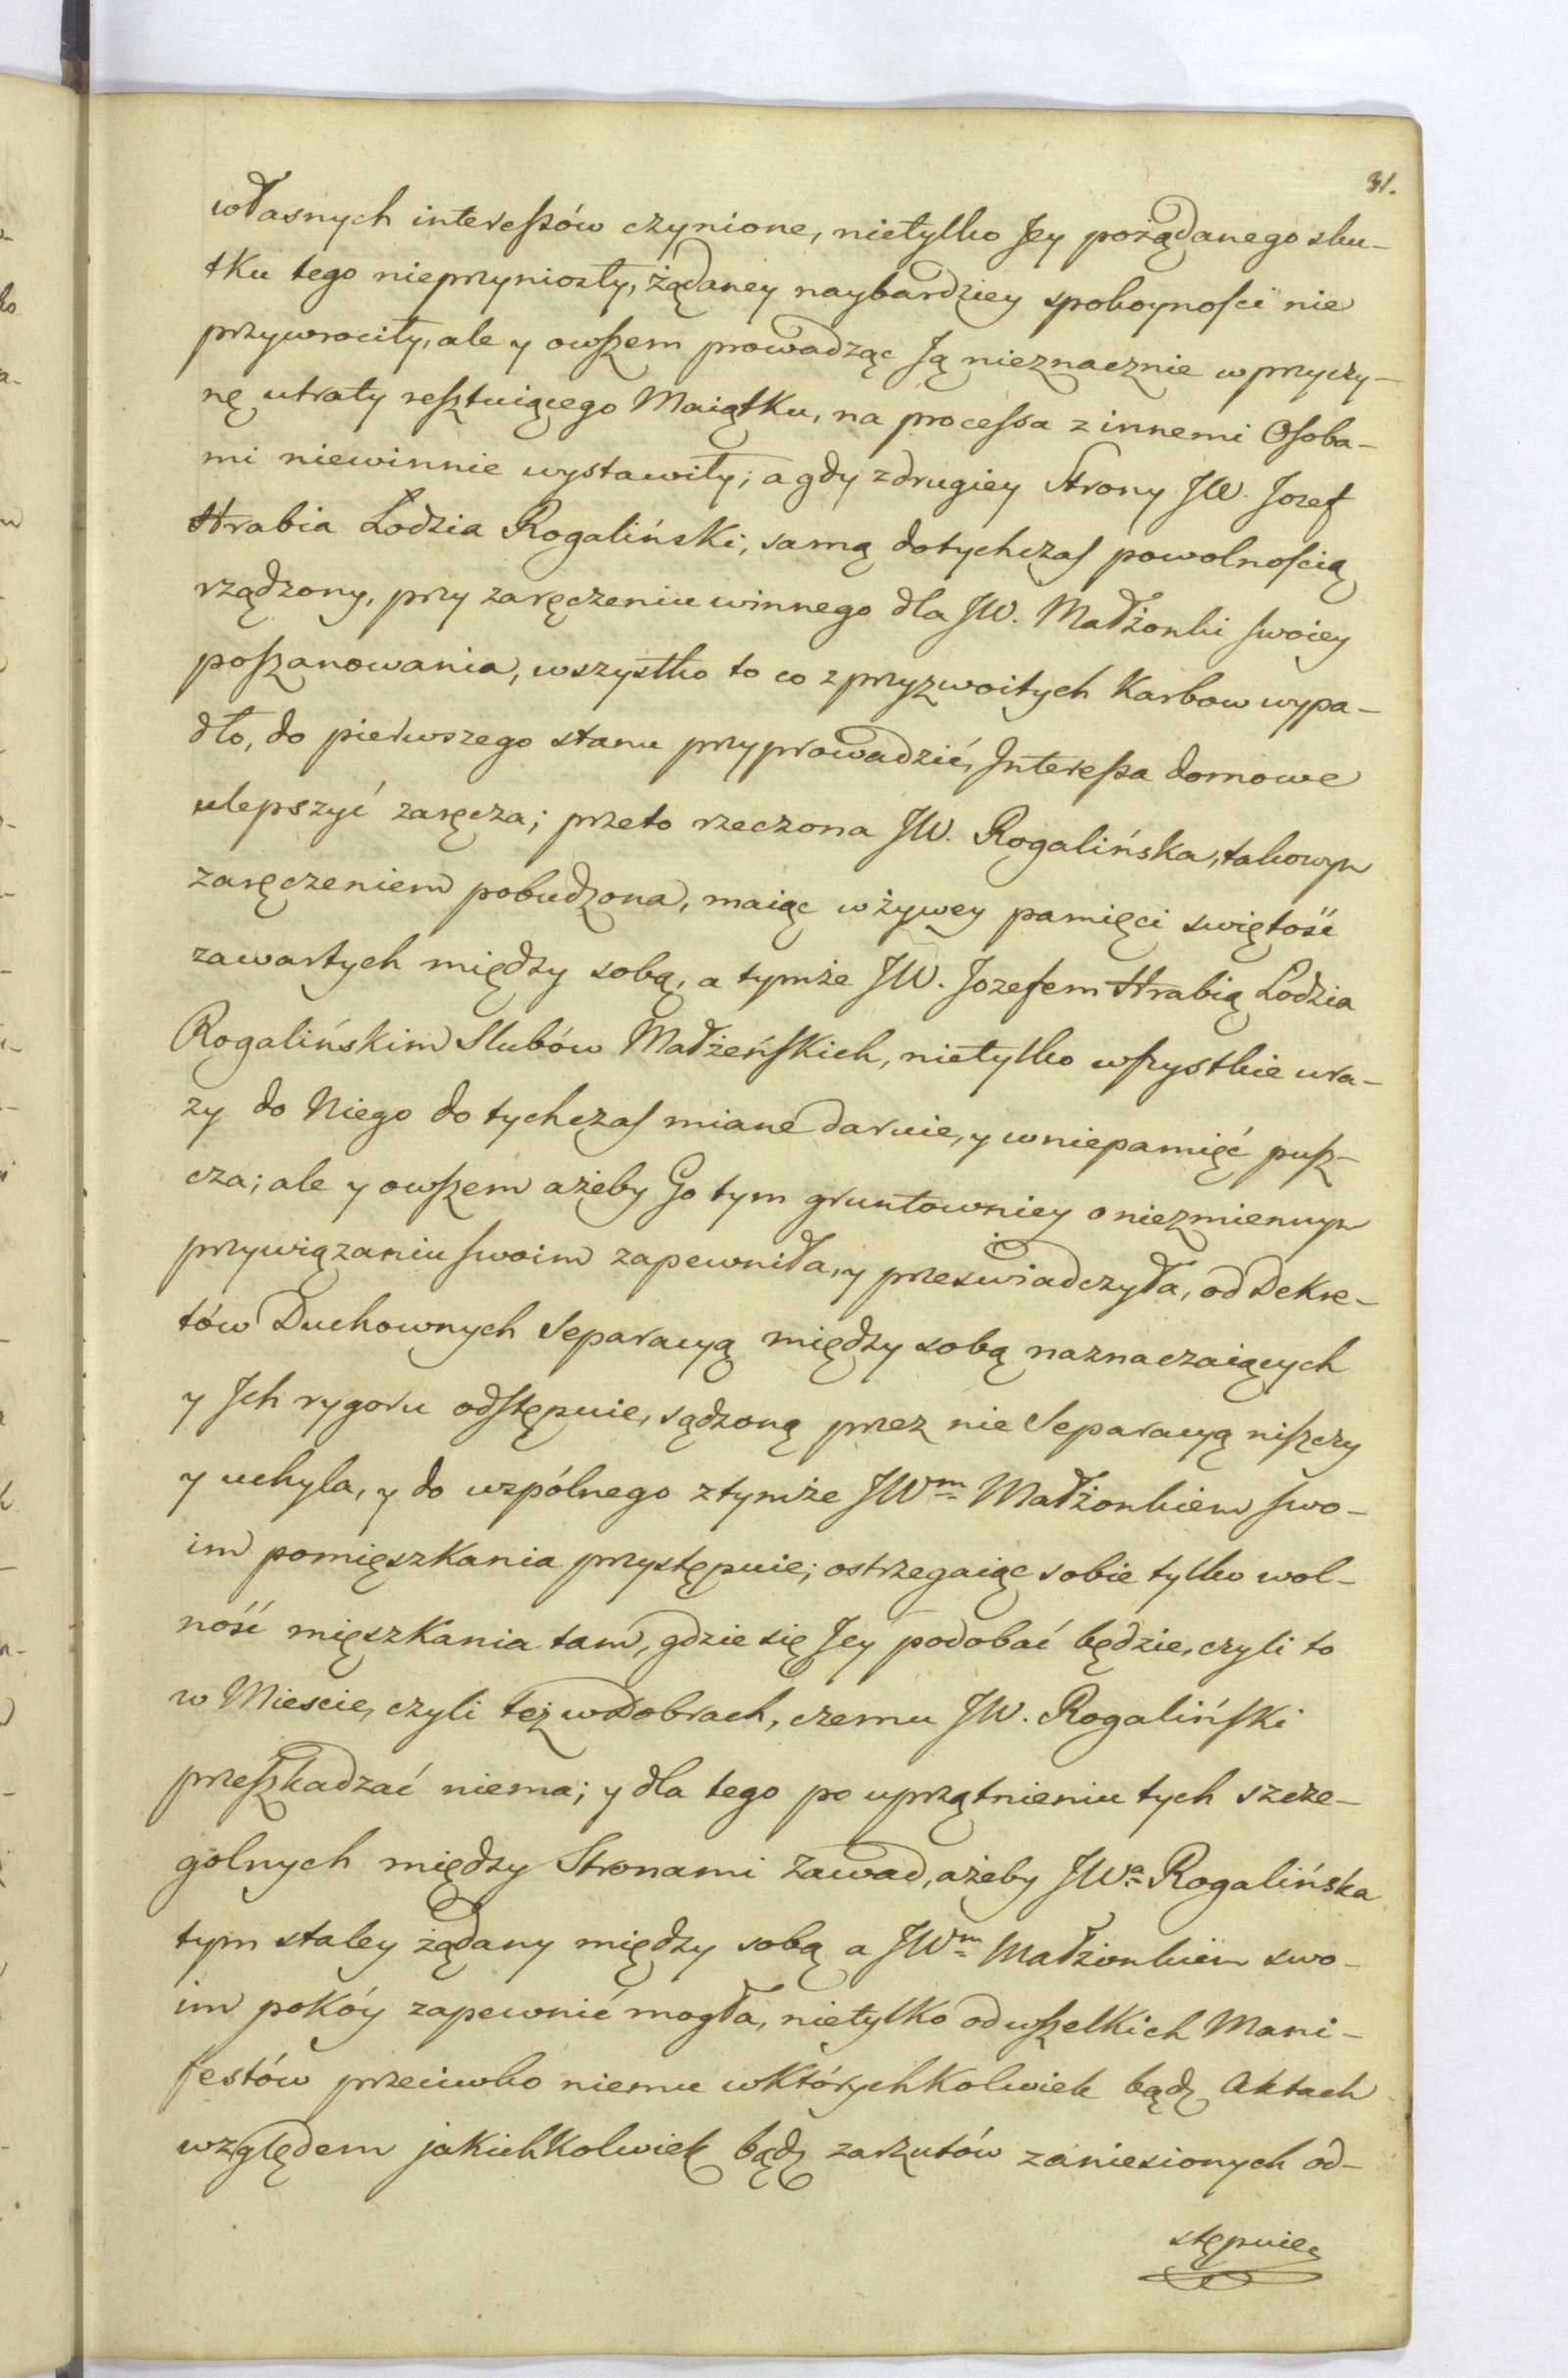 31.
własnych interessów czynione, nietylko Jey pożądanego sku-
tku tego nieprzyniosły, żądaney naybardziey spokoynosci nie
przywrociły, ale y owszem prowadząc Ją nieznacznie w przyczy-
nę utraty resztuiącego Maiątku, na processa z innemi Osoba-
mi niewinnie wystawiły; a gdy z drugiey Strony JW. Jozef
Hrabia Łodzia Rogaliński, samą dotychczas powolnoscią
rządzony, przy zaręczeniu winnego dla JW. Małżonki swoiey
poszanowania, wszystko to co z przyzwoitych Karbow wypa-
dło, do pierwszego stanu przyprowadzić, Interessa domowe
ulepszyć zaręcza; przeto rzeczona JW. Rogalińska, takowym
zaręczeniem pobudzona, maiąc w żywey pamięci swiętość
zawartych między sobą, a tymże JW. Jozefem Hrabią Łodzia
Rogalińskim Slubów Małżeńskich, nietylko wszystkie ura-
zy do Niego dotychczas miane daruie, y w niepamięć pusz-
cza; ale y owszem ażeby Go tym gruntowniey o niezmiennym
przywiązaniu swoim zapewniła, y przeswiadczyła, od Dekre-
tów Duchownych Separacyą między sobą naznaczaiących
y Jch rygoru odstępuie, sądzoną przez nie Separacyą niszczy
y uchyla, y do wspólnego z tymże JWm Małżonkiem swo-
im pomięszkania przystępuie; ostrzegaiąc sobie tylko wol-
ność mięszkania tam, gdzie się Jey podobać będzie, czyli to
w Miescie, czyli też w Dobrach, czemu JW. Rogaliński
przeszkadzać niema; y dla tego po uprzątnieniu tych szcze-
golnych między Stronami Zawad, ażeby JWa Rogalińska
tym staley żądany między sobą a JWm Małżonkiem swo-
im pokóy zapewnić mogła, nietylko od wszelkich Mani-
festów przeciwko niemu w którychkolwiek bądz Aktach
względem jakichkolwiek bądz zarzutów zaniesionych od-
stępuie